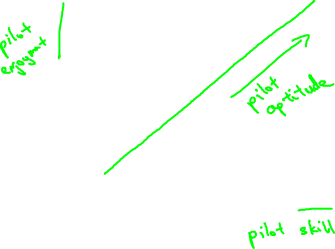 pilot
enjoymt
pilot
aptitude
pilot skill